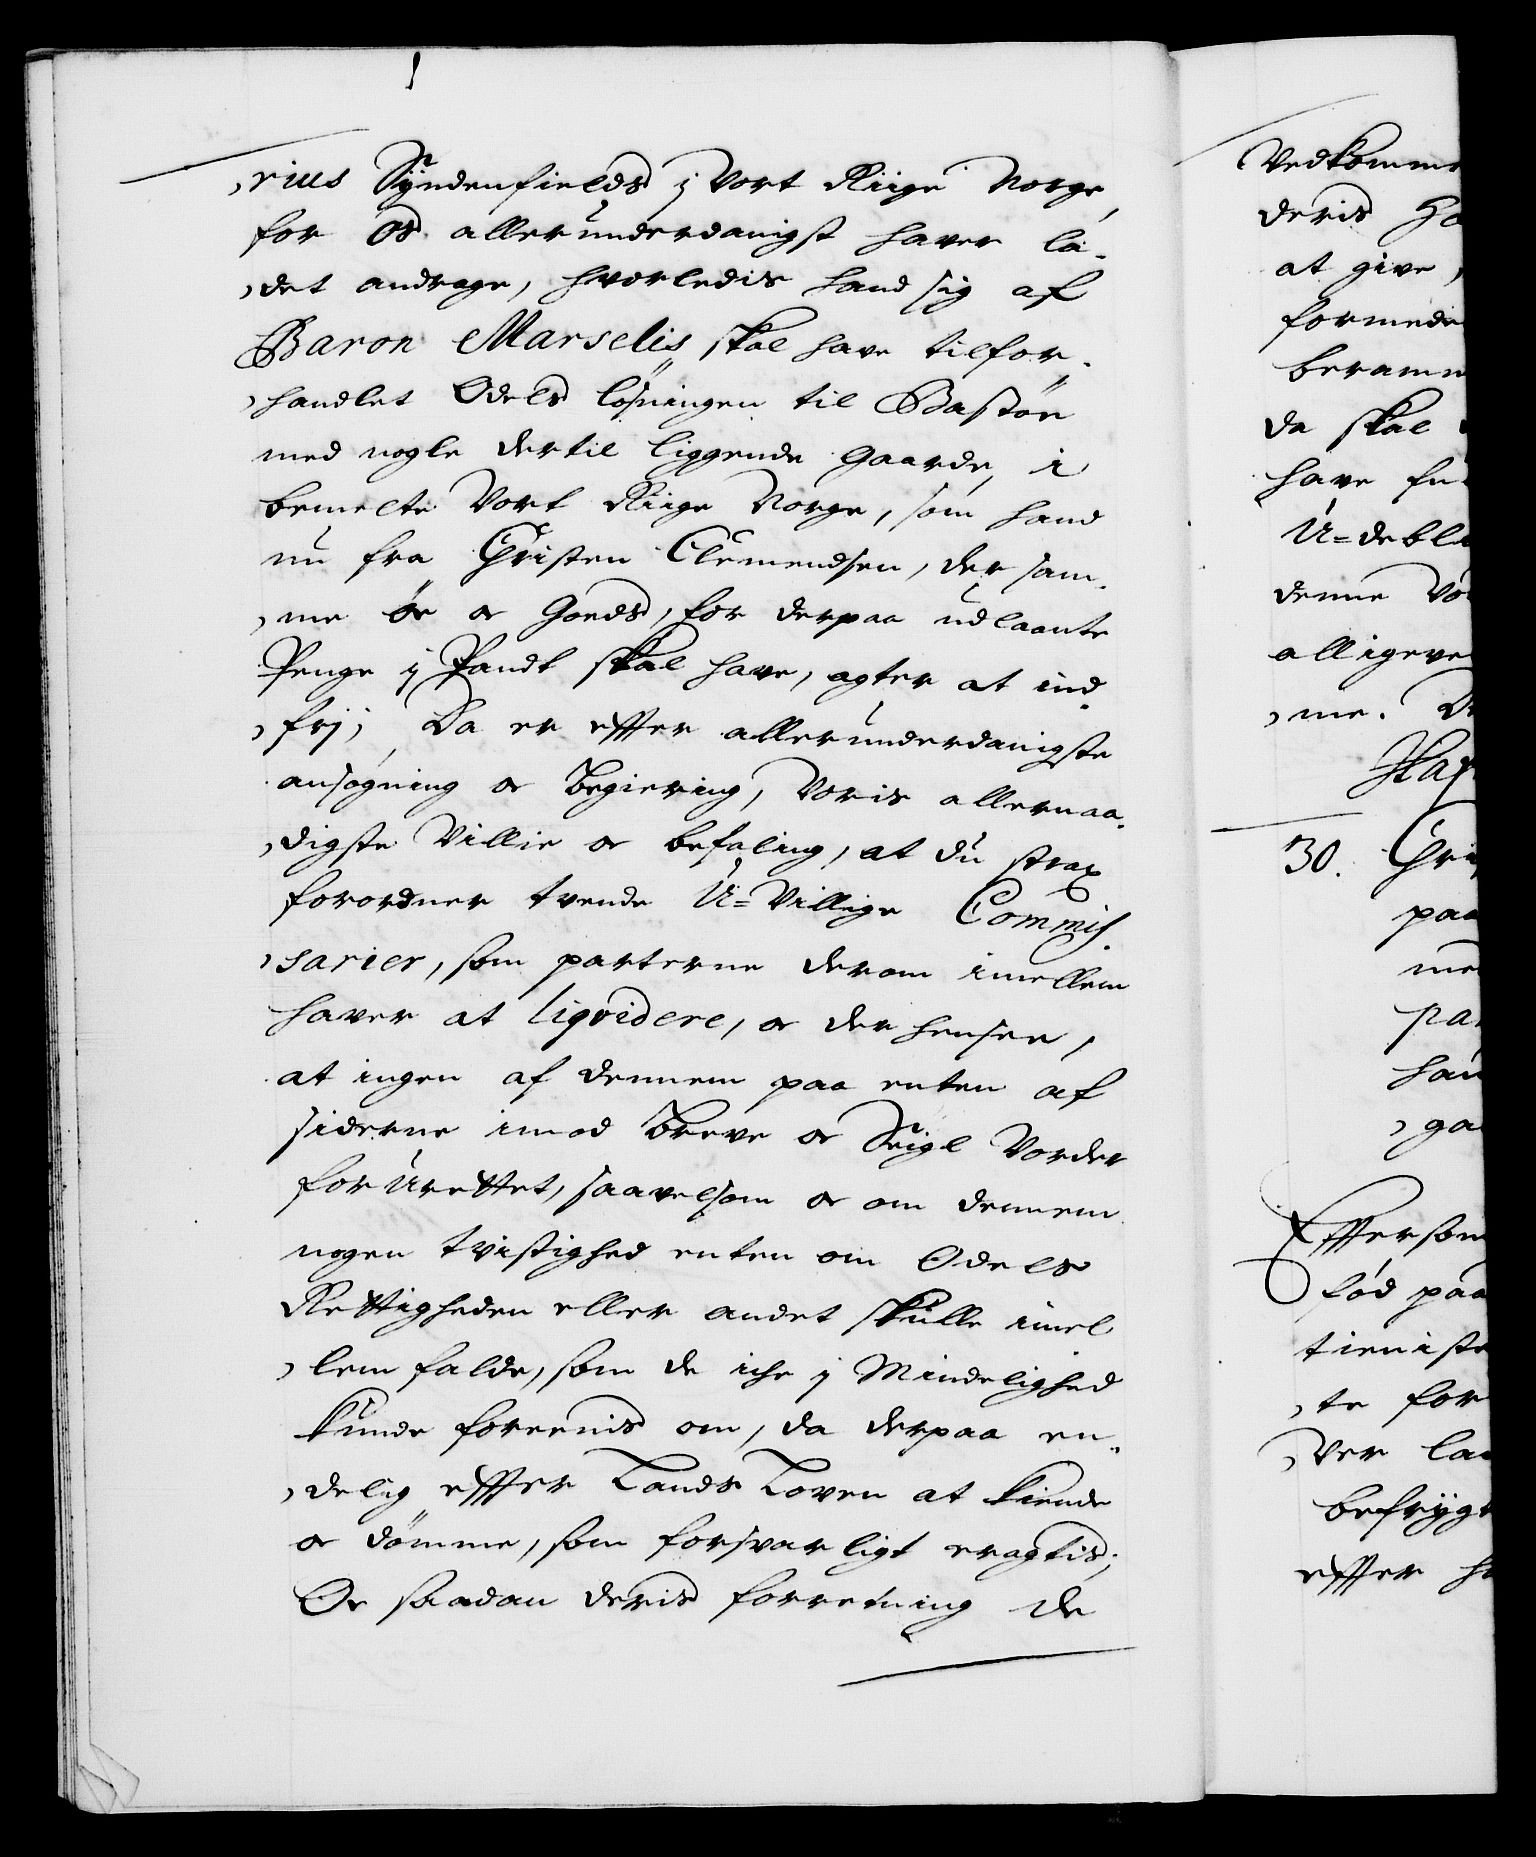 rius Syndenfields j Vort Riige Norge,
for Os allerunderdanigst haver la-
det andrage, hvorledis hand sig af
Baron Marselis skal have tilfor-
handlet Odels løsningen til Bastöe
med nogle dertil liggende Gaarde, i
bemelte Vort Riige Norge, som hand
nu fra Christen Clemendsen, der sam-
me Øe oc Goeds, for derpaa udlaante
Penge j Pandt skal have, agter at ind-
frj; Da er effter allerunderdanigste
ansøgning oc Begiering, Voris allernaa-
digste Villie oc befaling, at du strax
forordner tvende U-Villige Commis-
sarier, som parterne derom imellem
haver at liqvidere, oc der hensee,
at ingen af dennem paa enten af
siderne imod Breve oc Seigl Vorder
forurettet, saavelsom oc om dennem
nogen tvistighed enten om Odels
Rettigheden eller andet skulle imel
lem falde, som de iche j Mindelighed
kunde foreenis om, da derpaa en-
delig effter Lands Loven at kiende
oc dömme, som forsvarligt eragtis;
Oc saadan deris forretning de
Vedkomme
deris Ha
at give,
formede
beramm
da skal
have fu
U=debl
denne Vo
alligeve
me. D
Hafn
30. Chri
paa
me
pa
han
ga
Effersom
fød paa
tieniste
te for
ver la
befrygt
effter h